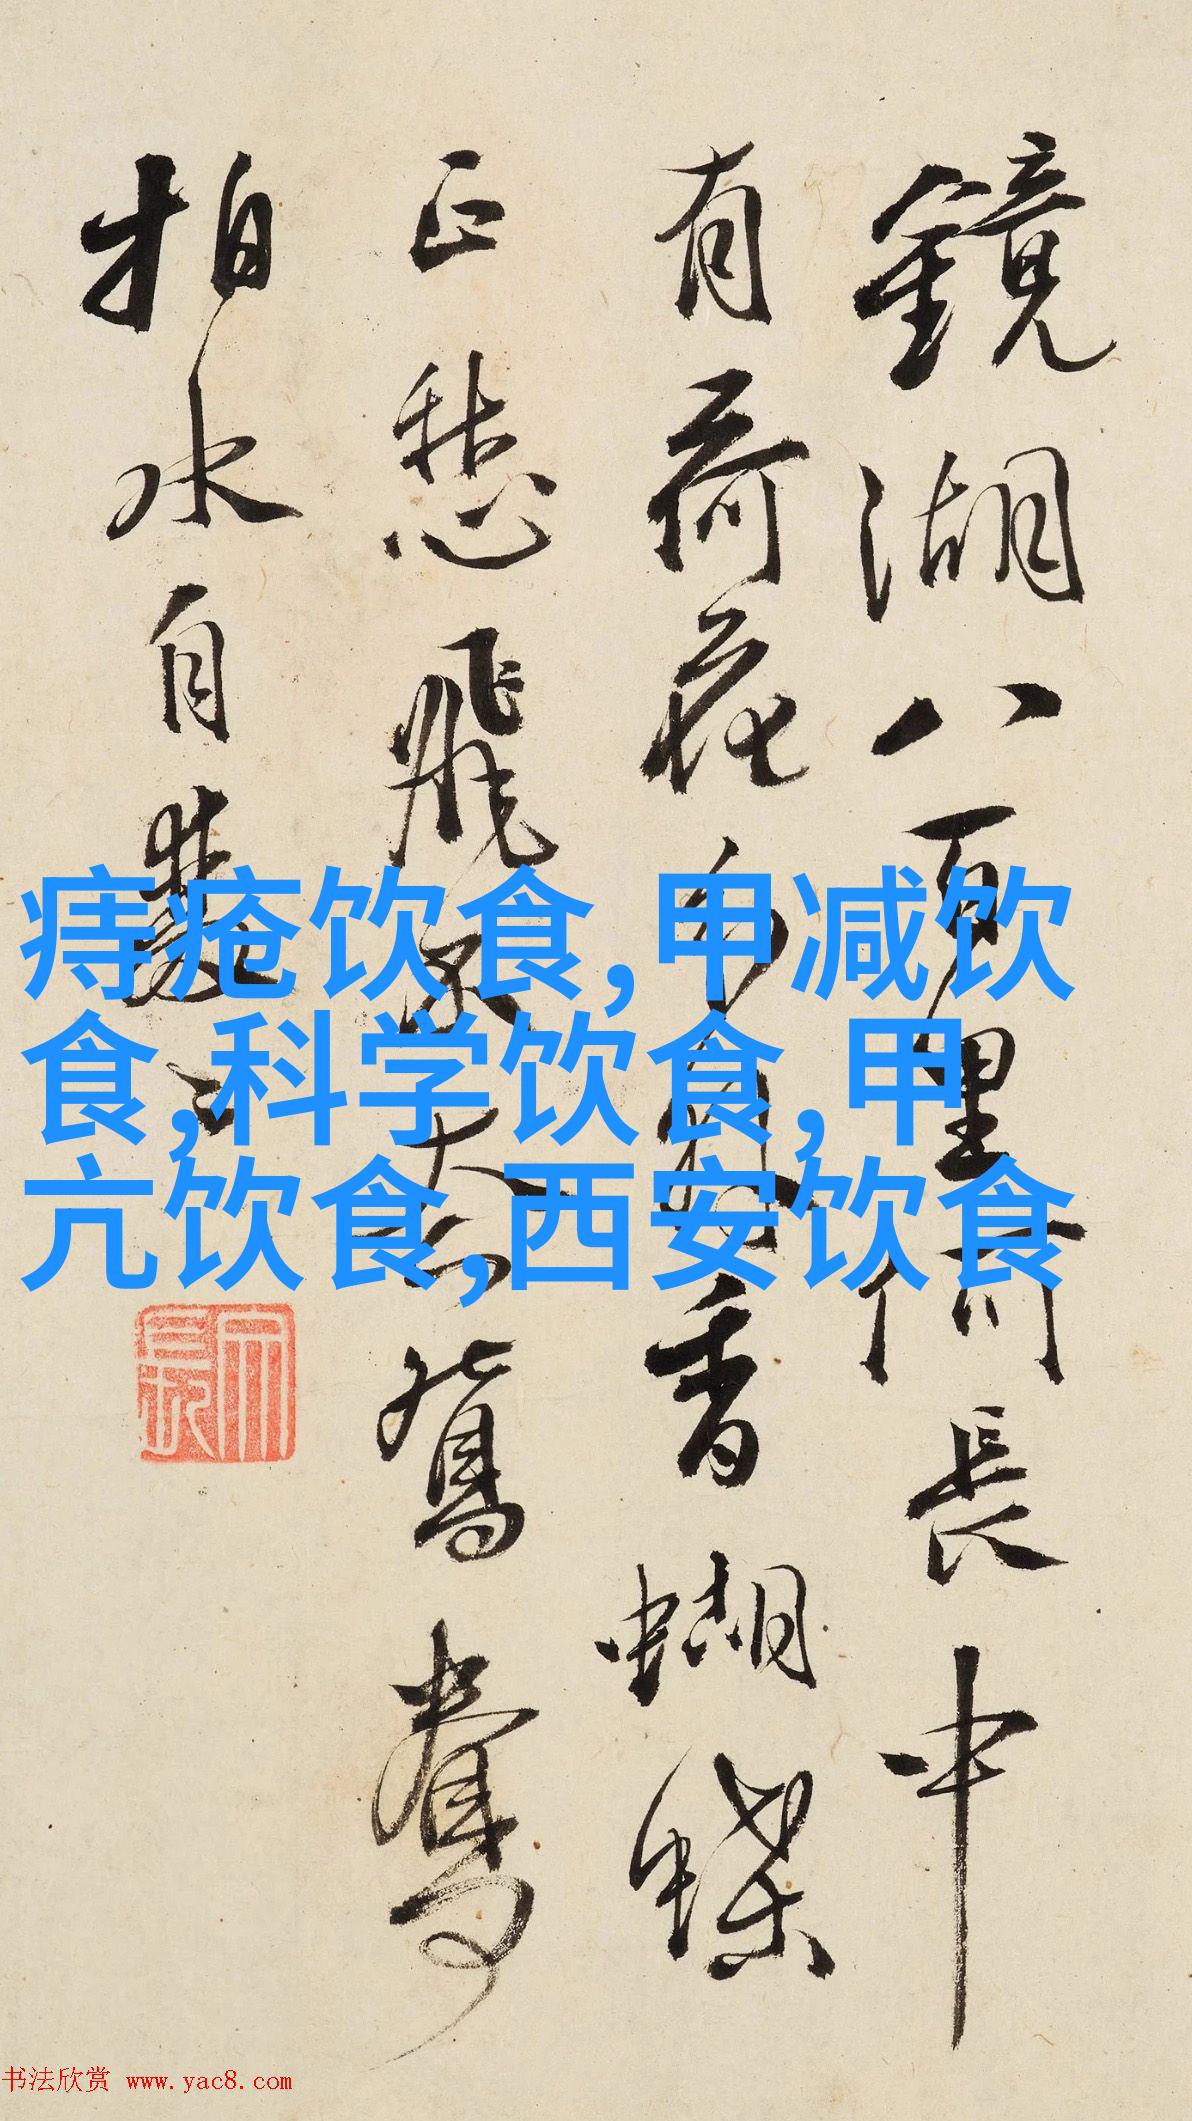 鏡湖八百里何長中
有荷花分外香蝴蝶
正愁飛不去鴛鴦
拍水自雙
痔疮饮食,甲减饮
食,科学饮食,甲
亢饮食,西安饮食
书法欣赏 www.yac8.com